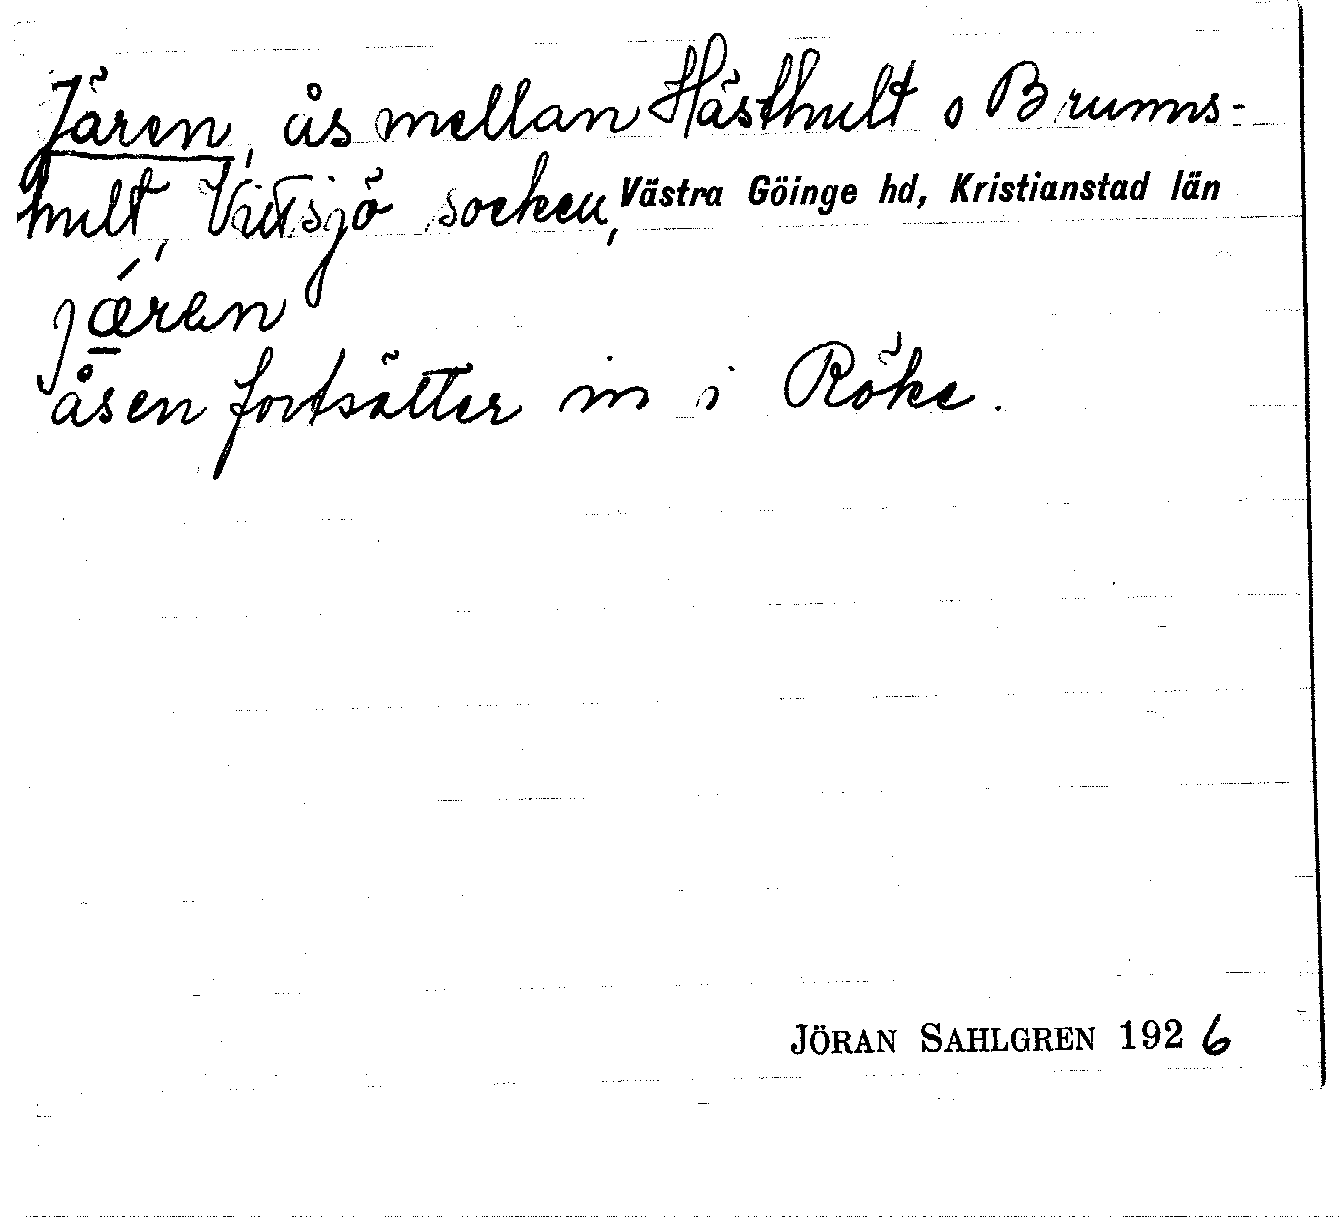 Jären, ås mellan Hästhult o Brunns-
hult, Vittsjö socken, Västra Göinge hd, Kristianstad län
jǽren
åsen fortsätter in i Röke.
JÖRAN SAHLGREN 1926